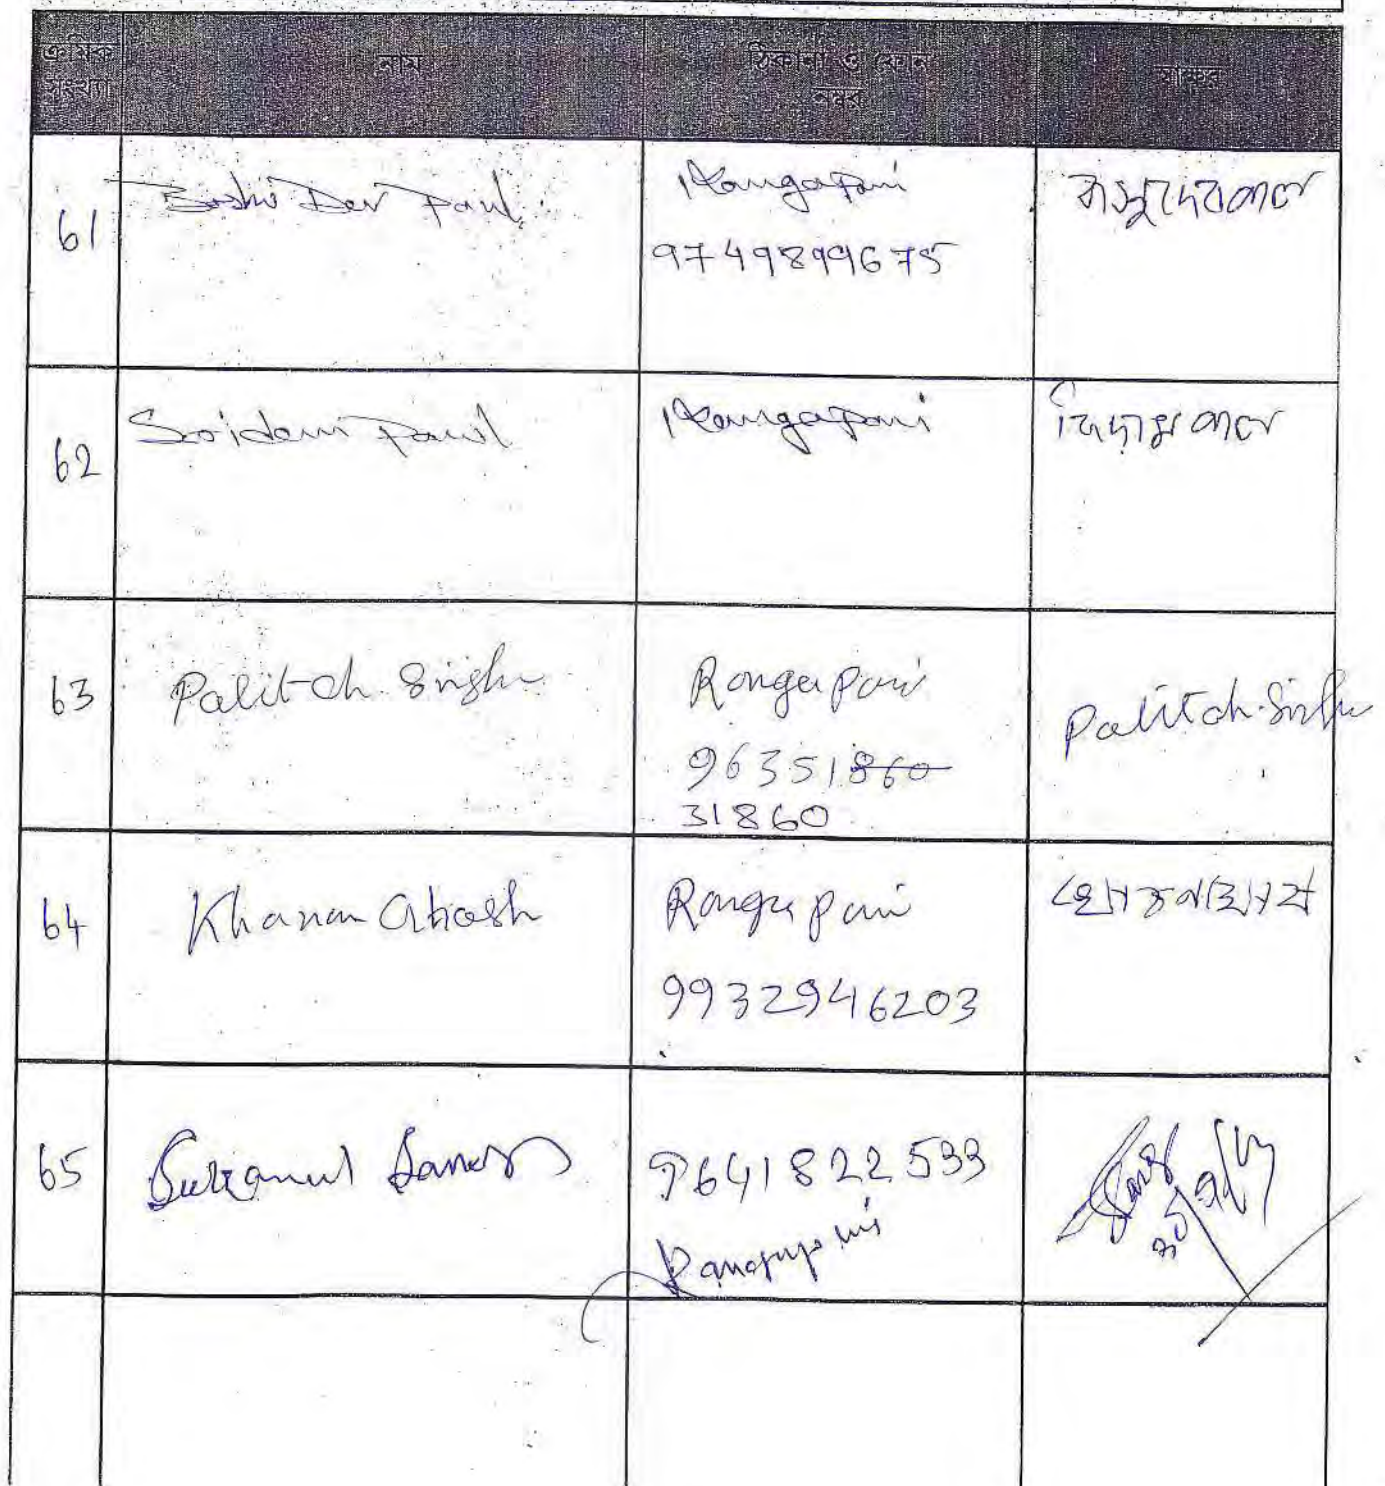 ক্রমিক সংখ্যা
নাম
ঠিকানা ও ফোন নম্বর
স্বাক্ষর
61
Dev Paul
Rangapani
9749899675
বাসুদেব পাল
62
Sridam Paul
Rangapani
পাল
63
Palit ch. Singha
Rangapani
96351860
31860
Palit ch. Singha
64
Khanan Ghosh
Rangapani
9932946203
65
9641822533
Rangapani